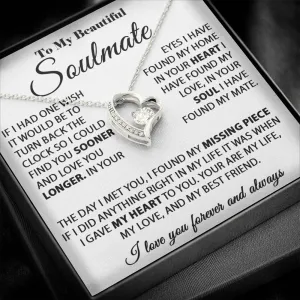 To My Beautiful
Soulmate
IF I HAD ONE WISH
IT WOULD BE TO
TURN BACK THE
CLOCK SO I COULD
FIND YOU SOONER
AND LOVE YOU
LONGER. IN YOUR
EYES I HAVE
FOUND MY HOME
IN YOUR HEART I
HAVE FOUND MY
LOVE, IN YOUR
SOUL, I HAVE
FOUND MY MATE.
THE DAY I MET YOU, I FOUND MY MISSING PIECE
IF I DID ANYTHING RIGHT IN MY LIFE IT WAS WHEN
I GAVE MY HEART TO YOU, YOUR ARE MY LIFE,
MY LOVE, AND MY BEST FRIEND.
I love you forever and always